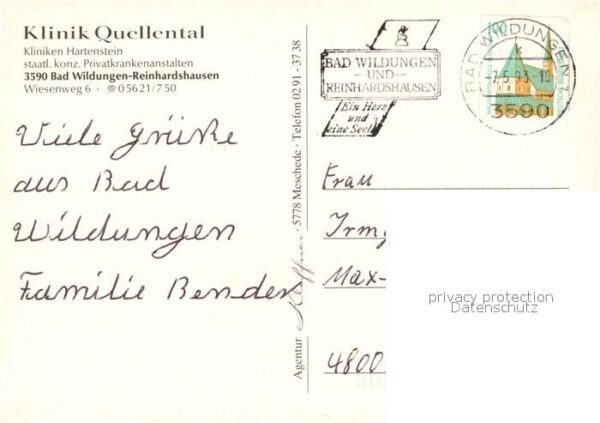 Klinik Quellental
Kliniken Hartenstein
staatl. konz. Privatkrankenanstalten
3590 Bad Wildungen-Reinhardshausen
Wiesenweg 6 · ☎ 05621/750
Viele Grüße
aus Bad
Wildungen
Familie Bender
Agentur · 5778 Meschede · Telefon 02 91 - 37 38
BAD WILDUNGEN
-UND-
REINHARDSHAUSEN
Ein Herz
und
eine Seele
100
BAD WILDUNGEN 1
3590
Frau
Irmg
Max-
4800
privacy protection
Datenschutz